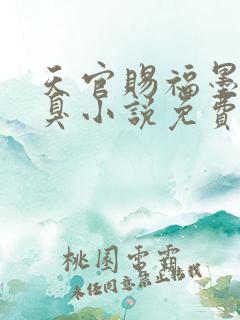 天官赐福墨
真小说免费
桃园雷霸
未经同意禁止转载